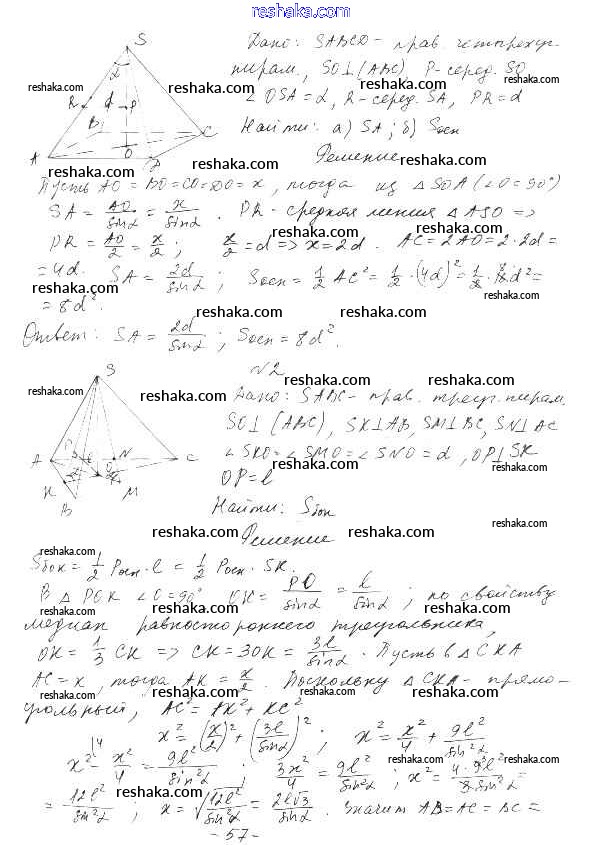 reshaka.com
Дано: SABCD – прав. четырехуг.
пирам., SO⊥(ABC), P-серед. SO
∠OSA = α, R-серед. SA, PR = d
Найти: а) SA; б) Sосн
Решение
Пусть AO = BO = CO = DO = x, тогда из △SOA (∠O = 90°)
SA = AO/sinα = x/sinα. PR - средняя линия △ASO =>
PR = AO/2 = x/2; x/2 = d => x = 2d. AC = 2AO = 2·2d =
= 4d. SA = 2d/sinα; Sосн = 1/2 AC² = 1/2·(4d)² = 1/2· d² =
= 8d².
Ответ: SA = 2d/sinα; Sосн = 8d².
N2
Дано: SABC – прав. треуг. пирам.
SO⊥(ABC), SK⊥AB, SM⊥BC, SN⊥AC
∠SKO = ∠SMO = ∠SNO = α, OP⊥SK
OP = l
Найти: Sбок
Решение
Sбок = 1/2 Pосн·l = 1/2 Pосн·SK.
В △POK ∠O = 90° OK = PO/sinα = l/sinα; по свойству
медиан равностороннего треугольника,
OK = 1/3 CK => CK = 3OK = 3l/sinα. Пусть в △CKA
AC = x, тогда AK = x/2. Поскольку △CKA - прямо-
угольный, AC² = AK² + KC²
x² = (x/2)² + (3l/sinα)²; x² = x²/4 + 9l²/sin²α
x² - x²/4 = 9l²/sin²α; 3x²/4 = 9l²/sin²α; x² = 4·9l²/3sin²α =
= 12l²/sin²α; x = √(12l²/sin²α) = 2l√3/sinα. Значит AB = AC = BC =
- 57 -